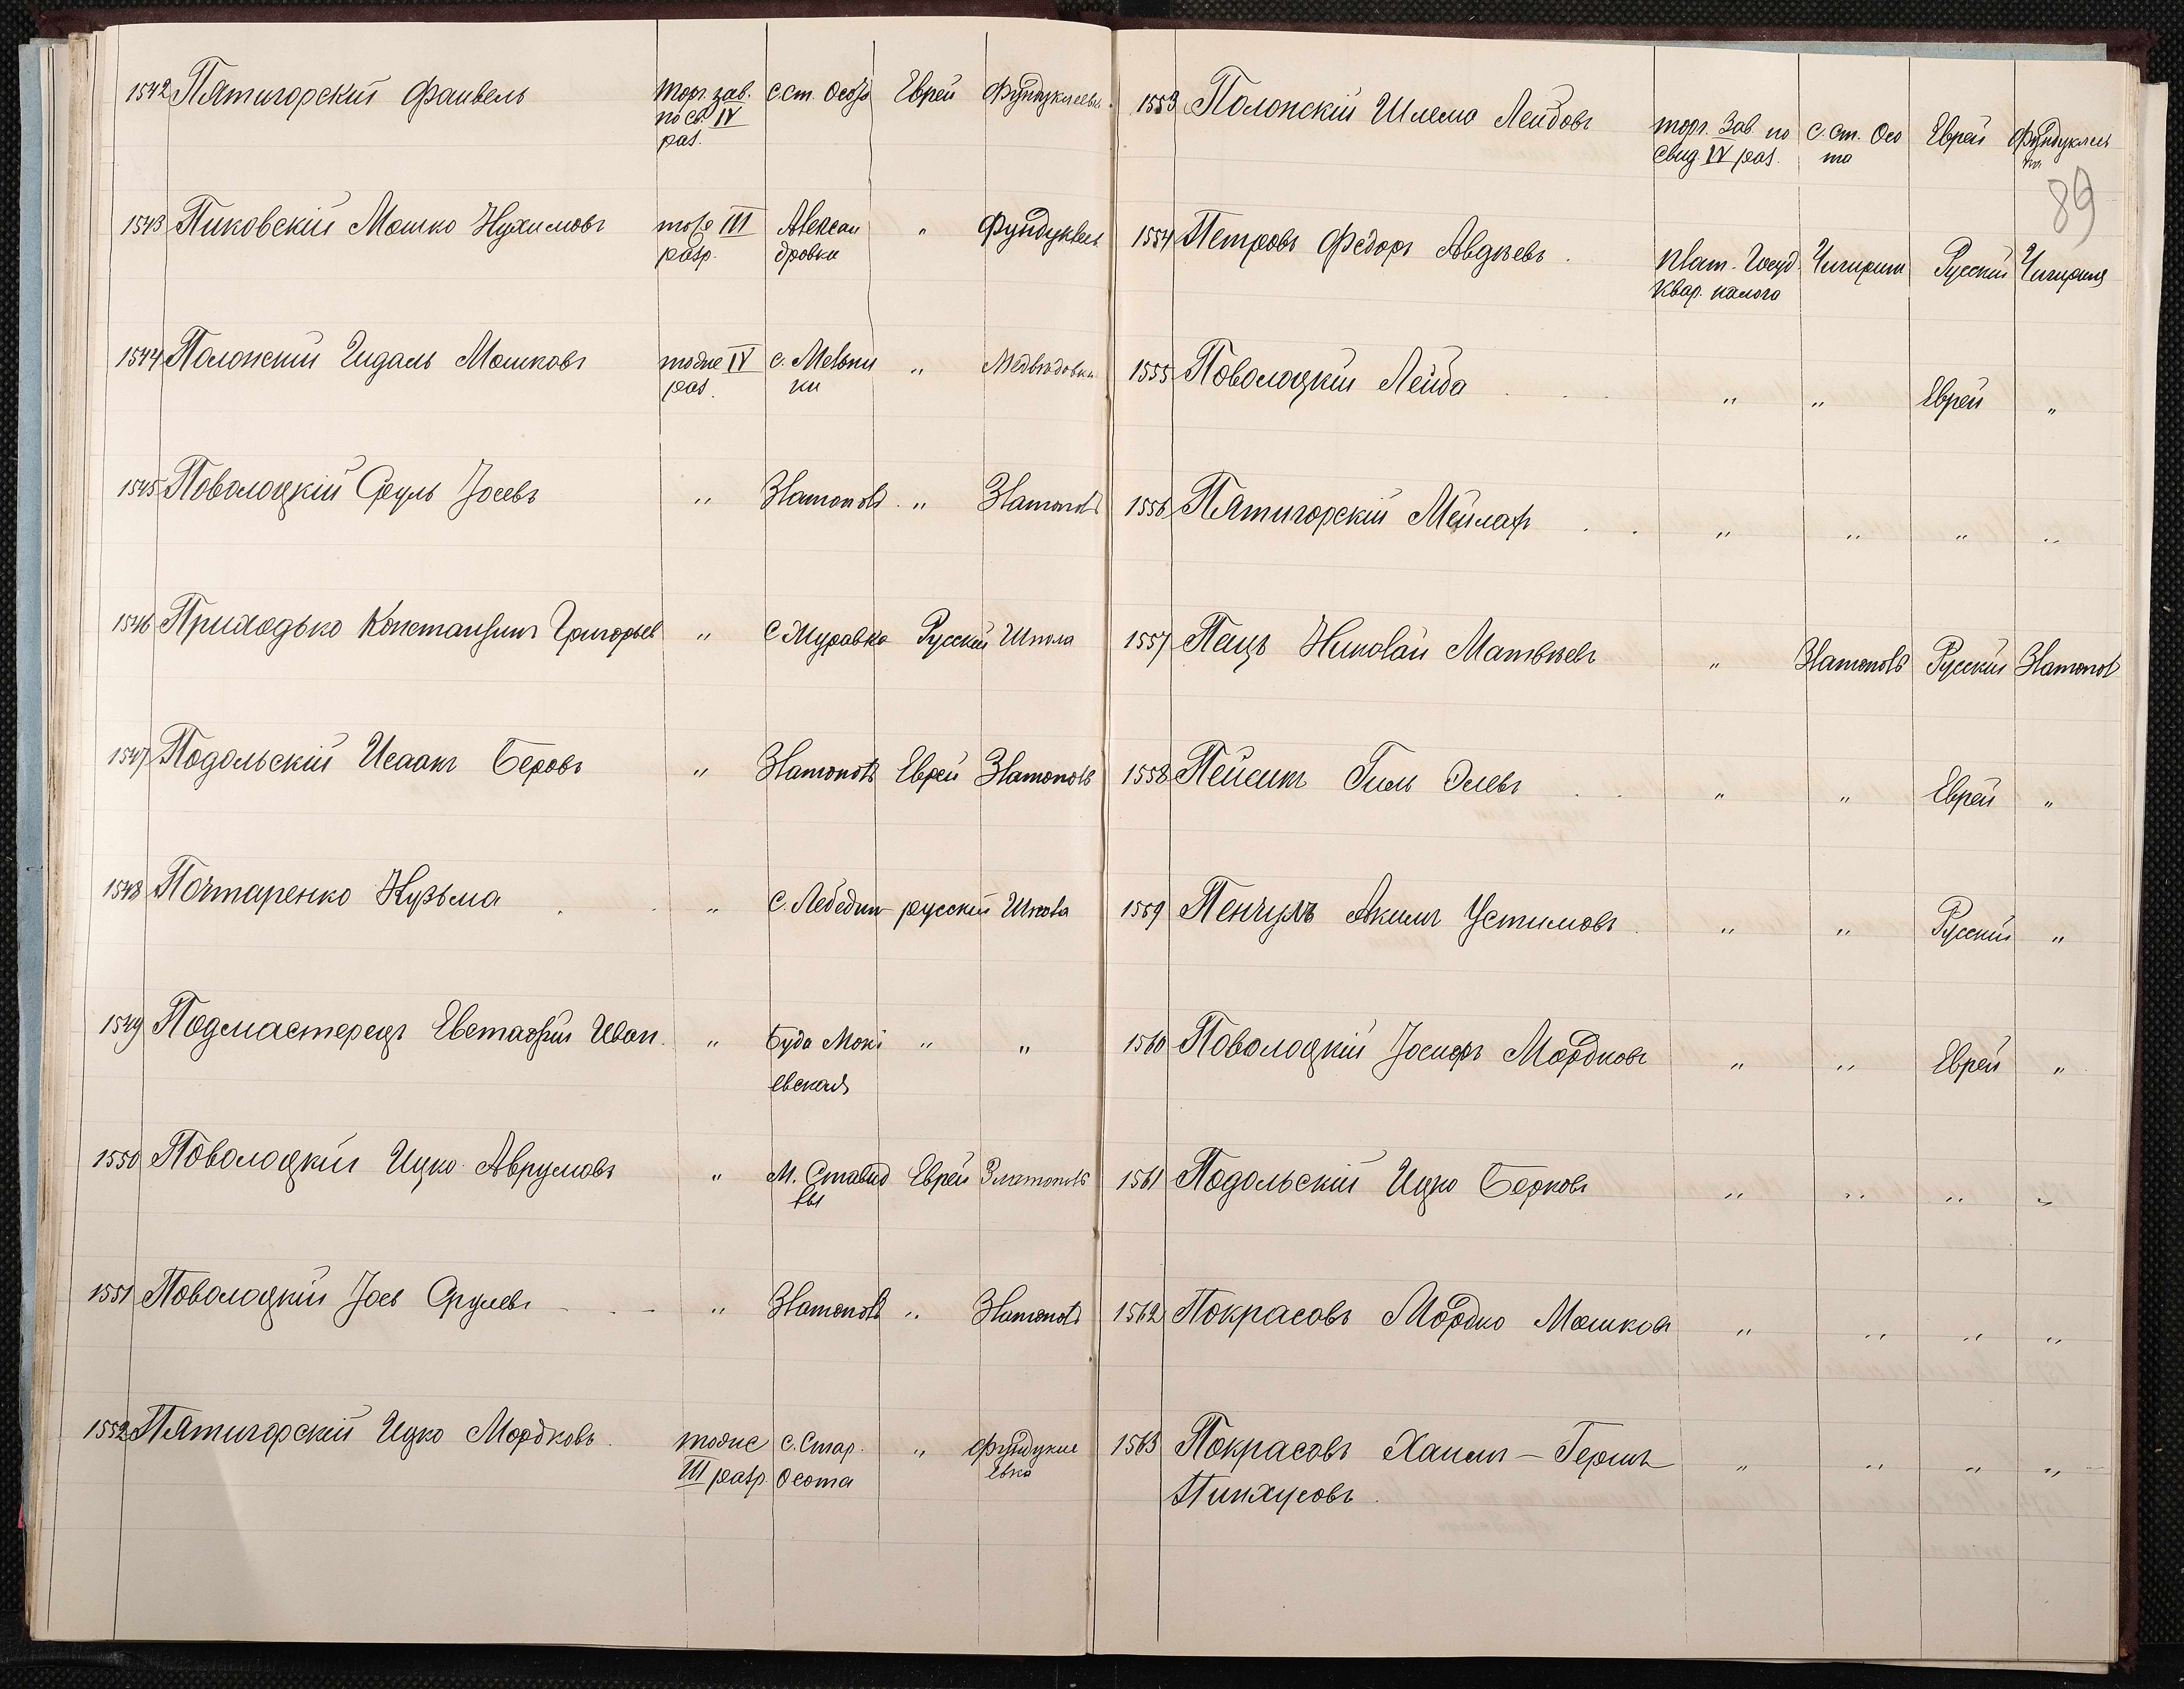 1542 Пятигорскій Фаивель торг. зав. с. Ст. Осота Еврей Фундуклеевка
по св. IV
раз.
1543 Пиковскій Мошко Нухимовъ тоже III Алексан „ Фундуклеев
разр. дровка
1544 Полонскій Гидаль Мошковъ тоже IV с. Мельни „ Медвѣдовка
раз. ки
1545 Поволоцкій Сруль Іосевъ „ Златополь „ Златополь
1546 Приходько Константинъ Григорьев „ С Журавка Русскій Шпола
1547 Подольскій Исаакъ Беровъ „ Златополь Еврей Златополь
1548 Почтаренко Кузьма „ С. Лебедин русскій Шпола
1549 Подмастерецъ Евстафій Иван. „ Буда Макі „ „
евская
1550 Поволоцкій Ицко Аврумовъ „ М. Ставид Еврей Златополь
лы
1551 Поволоцкій Іось Срулевъ „ Златополь „ Златополь
1552 Пятигорскій Ицко Мордковъ тоже с. Стар. „ Фундукле
III разр. Осота евка
1553 Полонскій Шлема Лейбовъ торг. зав. по с. Ст. Осо Еврей Фундуклее
свид IV раз. та
89
1554 Петровъ Федоръ Авдѣевъ плат. Госуд. Чигиринъ Русскій Чигиринъ
квар. налога
1555 Поволоцкій Лейба „ „ Еврей „
1556 Пятигорскій Мейлахъ „ „ „ „
1557 Пацъ Николай Матвѣевъ „ Златополь Русскій Златопол
1558 Пейсикъ Гиль Элевъ „ „ Еврей „
1559 Пенчулъ Акимъ Устимовъ „ „ Русскій „
1560 Поволоцкій Іосифъ Мордковъ „ „ Еврей „
1561 Подольскій Ицко Берковъ „ „ „ „
1562 Покрасовъ Мордко Мошков „ „ „ „
1563 Покрасовъ Хаимъ-Гершъ „ „ „ „
Пинхусовъ